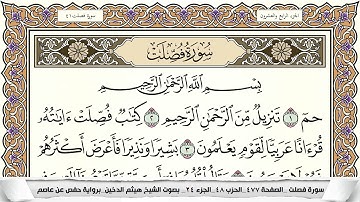 الجزء الرابع والعشرون
سورة فصلت ٤١
سُورَةُ فُصِّلَتْ
بِسْمِ اللَّهِ الرَّحْمَٰنِ الرَّحِيمِ
حمٓ ١ تَنزِيلٌ مِّنَ الرَّحْمَٰنِ الرَّحِيمِ ٢ كِتَٰبٌ فُصِّلَتْ ءَايَٰتُهُۥ
قُرْءَانًا عَرَبِيًّا لِّقَوْمٍ يَعْلَمُونَ ٣ بَشِيرًا وَنَذِيرًا فَأَعْرَضَ أَكْثَرُهُمْ
سورة فصلت _الصفحة ٤٧٧_الحزب ٤٨_الجزء ٢٤_ بصوت الشيخ هيثم الدخين_برواية حفص عن عاصم